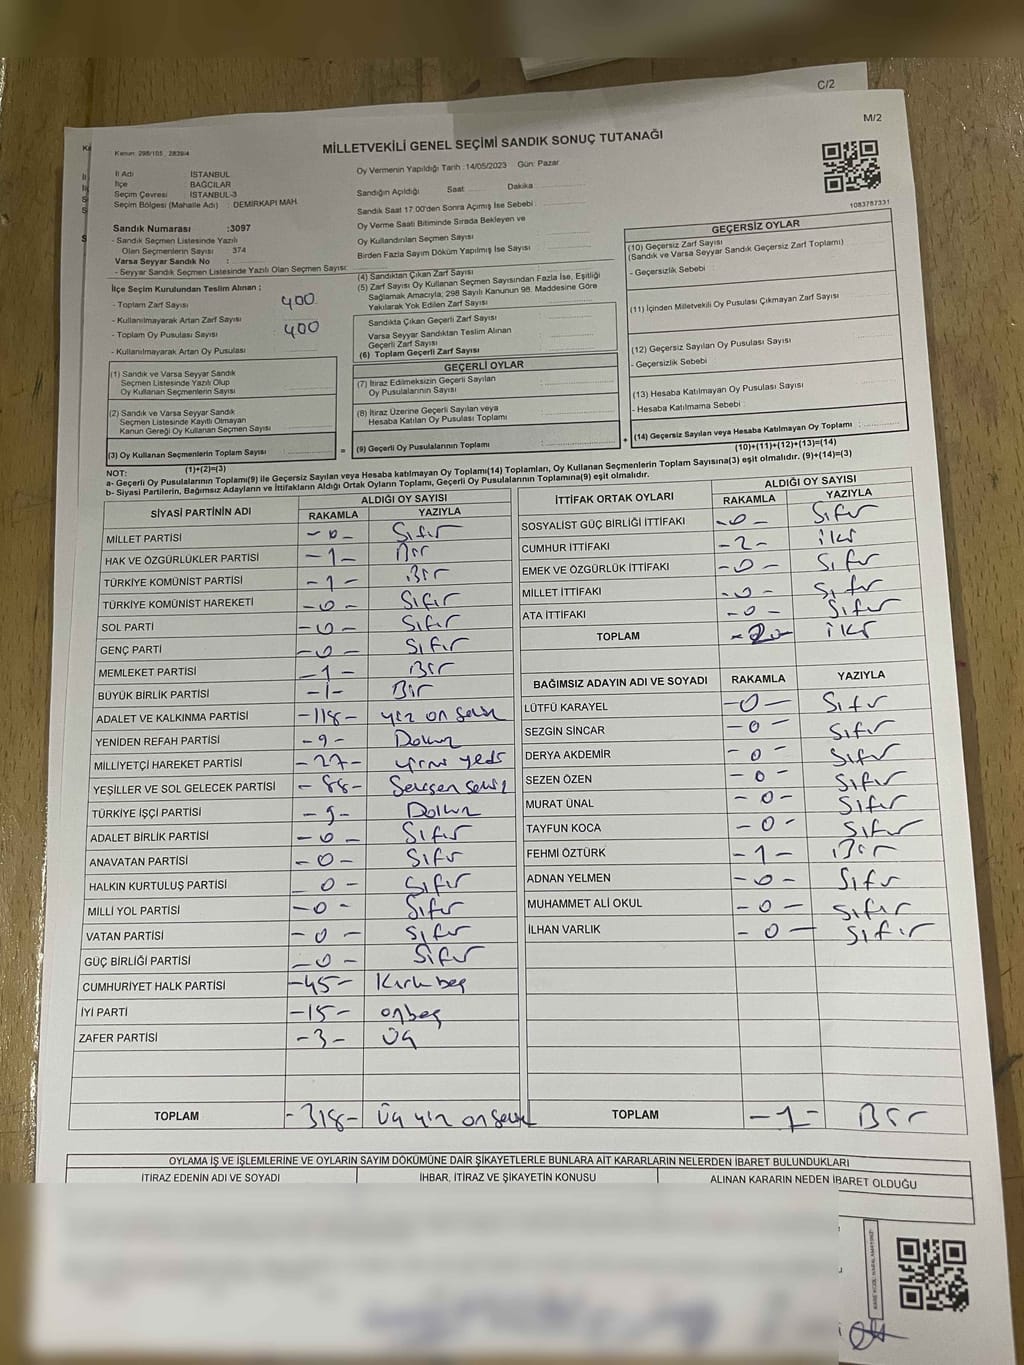 C/2
M/2
Kanun: 298/105 , 2839/4
MİLLETVEKİLİ GENEL SEÇİMİ SANDIK SONUÇ TUTANAĞI
1083787331
İl Adı : İSTANBUL
İlçe : BAĞCILAR
Seçim Çevresi : İSTANBUL-3
Seçim Bölgesi (Mahalle Adı) : DEMİRKAPI MAH.
Sandık Numarası :3097
- Sandık Seçmen Listesinde Yazılı
Olan Seçmenlerin Sayısı : 374
Varsa Seyyar Sandık No :
- Seyyar Sandık Seçmen Listesinde Yazılı Olan Seçmen Sayısı:
İlçe Seçim Kurulundan Teslim Alınan ;
- Toplam Zarf Sayısı : 400
- Kullanılmayarak Artan Zarf Sayısı :
- Toplam Oy Pusulası Sayısı : 400
- Kullanılmayarak Artan Oy Pusulası :
(1) Sandık ve Varsa Seyyar Sandık
Seçmen Listesinde Yazılı Olup
Oy Kullanan Seçmenlerin Sayısı
(2) Sandık ve Varsa Seyyar Sandık
Seçmen Listesinde Kayıtlı Olmayan
Kanun Gereği Oy Kullanan Seçmen Sayısı
(3) Oy Kullanan Seçmenlerin Toplam Sayısı
(1)+(2)=(3)
Oy Vermenin Yapıldığı Tarih :14/05/2023 Gün: Pazar
Sandığın Açıldığı Saat Dakika
Sandık Saat 17.00'den Sonra Açımış İse Sebebi :
Oy Verme Saati Bitiminde Sırada Bekleyen ve
Oy Kullandırılan Seçmen Sayısı :
Birden Fazla Sayım Döküm Yapılmış İse Sayısı :
(4) Sandıktan Çıkan Zarf Sayısı
(5) Zarf Sayısı Oy Kullanan Seçmen Sayısından Fazla İse, Eşitliği
Sağlamak Amacıyla; 298 Sayılı Kanunun 98. Maddesine Göre
Yakılarak Yok Edilen Zarf Sayısı
Sandıkta Çıkan Geçerli Zarf Sayısı
Varsa Seyyar Sandıktan Teslim Alınan
Geçerli Zarf Sayısı
(6) Toplam Geçerli Zarf Sayısı
GEÇERLİ OYLAR
(7) İtiraz Edilmeksizin Geçerli Sayılan
Oy Pusulalarının Sayısı
(8) İtiraz Üzerine Geçerli Sayılan veya
Hesaba Katılan Oy Pusulası Toplamı
= (9) Geçerli Oy Pusulalarının Toplamı
GEÇERSİZ OYLAR
(10) Geçersiz Zarf Sayısı
(Sandık ve Varsa Seyyar Sandık Geçersiz Zarf Toplamı)
- Geçersizlik Sebebi :
(11) İçinden Milletvekili Oy Pusulası Çıkmayan Zarf Sayısı
(12) Geçersiz Sayılan Oy Pusulası Sayısı
- Geçersizlik Sebebi :
(13) Hesaba Katılmayan Oy Pusulası Sayısı
- Hesaba Katılmama Sebebi :
+ (14) Geçersiz Sayılan veya Hesaba Katılmayan Oy Toplamı :
(10)+(11)+(12)+(13)=(14)
NOT:
a- Geçerli Oy Pusulalarının Toplamı(9) ile Geçersiz Sayılan veya Hesaba katılmayan Oy Toplamı(14) Toplamları, Oy Kullanan Seçmenlerin Toplam Sayısına(3) eşit olmalıdır. (9)+(14)=(3)
b- Siyasi Partilerin, Bağımsız Adayların ve İttifakların Aldığı Ortak Oyların Toplamı, Geçerli Oy Pusulalarının Toplamına(9) eşit olmalıdır.
SİYASİ PARTİNİN ADI ALDIĞI OY SAYISI
RAKAMLA YAZIYLA
MİLLET PARTİSİ -0- Sıfır
HAK VE ÖZGÜRLÜKLER PARTİSİ -1- Bir
TÜRKİYE KOMÜNİST PARTİSİ -1- Bir
TÜRKİYE KOMÜNİST HAREKETİ -0- Sıfır
SOL PARTİ -0- Sıfır
GENÇ PARTİ -0- Sıfır
MEMLEKET PARTİSİ -1- Bir
BÜYÜK BİRLİK PARTİSİ -1- Bir
ADALET VE KALKINMA PARTİSİ -118- yüz on sekiz
YENİDEN REFAH PARTİSİ -9- Dokuz
MİLLİYETÇİ HAREKET PARTİSİ -27- yirmi yedi
YEŞİLLER VE SOL GELECEK PARTİSİ -88- Seksen sekiz
TÜRKİYE İŞÇİ PARTİSİ -9- Dokuz
ADALET BİRLİK PARTİSİ -0- Sıfır
ANAVATAN PARTİSİ -0- Sıfır
HALKIN KURTULUŞ PARTİSİ -0- Sıfır
MİLLİ YOL PARTİSİ -0- Sıfır
VATAN PARTİSİ -0- Sıfır
GÜÇ BİRLİĞİ PARTİSİ -0- Sıfır
CUMHURİYET HALK PARTİSİ -45- Kırk beş
İYİ PARTİ -15- onbeş
ZAFER PARTİSİ -3- üç
TOPLAM -318- Üç yüz on sekiz
İTTİFAK ORTAK OYLARI ALDIĞI OY SAYISI
RAKAMLA YAZIYLA
SOSYALİST GÜÇ BİRLİĞİ İTTİFAKI -0- Sıfır
CUMHUR İTTİFAKI -2- iki
EMEK VE ÖZGÜRLÜK İTTİFAKI -0- Sıfır
MİLLET İTTİFAKI -0- Sıfır
ATA İTTİFAKI -0- Sıfır
TOPLAM iki
BAĞIMSIZ ADAYIN ADI VE SOYADI RAKAMLA YAZIYLA
LÜTFÜ KARAYEL -0- Sıfır
SEZGİN SİNCAR -0- Sıfır
DERYA AKDEMİR -0- Sıfır
SEZEN ÖZEN -0- Sıfır
MURAT ÜNAL -0- Sıfır
TAYFUN KOCA -0- Sıfır
FEHMİ ÖZTÜRK -1- Bir
ADNAN YELMEN -0- Sıfır
MUHAMMET ALİ OKUL -0- Sıfır
İLHAN VARLIK -0- Sıfır
TOPLAM -1- Bir
OYLAMA İŞ VE İŞLEMLERİNE VE OYLARIN SAYIM DÖKÜMÜNE DAİR ŞİKAYETLERLE BUNLARA AİT KARARLARIN NELERDEN İBARET BULUNDUKLARI
İTİRAZ EDENİN ADI VE SOYADI İHBAR, İTİRAZ VE ŞİKAYETİN KONUSU ALINAN KARARIN NEDEN İBARET OLDUĞU